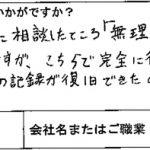 いかがですか？
に相談したところ「無理
すが、こちらで完全に
の記録が復旧できた
会社名またはご職業